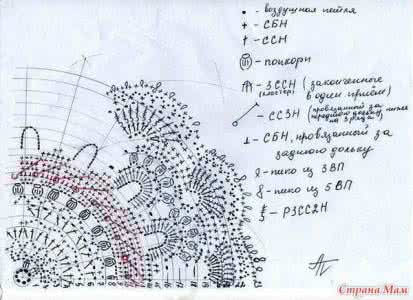 • - воздушная петля
+ - СБН
† - ССН
- попкорн
- 3ССН (законченные
в один приём)
(кластер)
- СС3Н (провязанный за
переднюю дольку петли
на 3 ряда
⊥ - СБН, провязанный за
заднюю дольку
- пико из 3 ВП
- пико из 5 ВП
- Р3СС2Н
Страна Мам